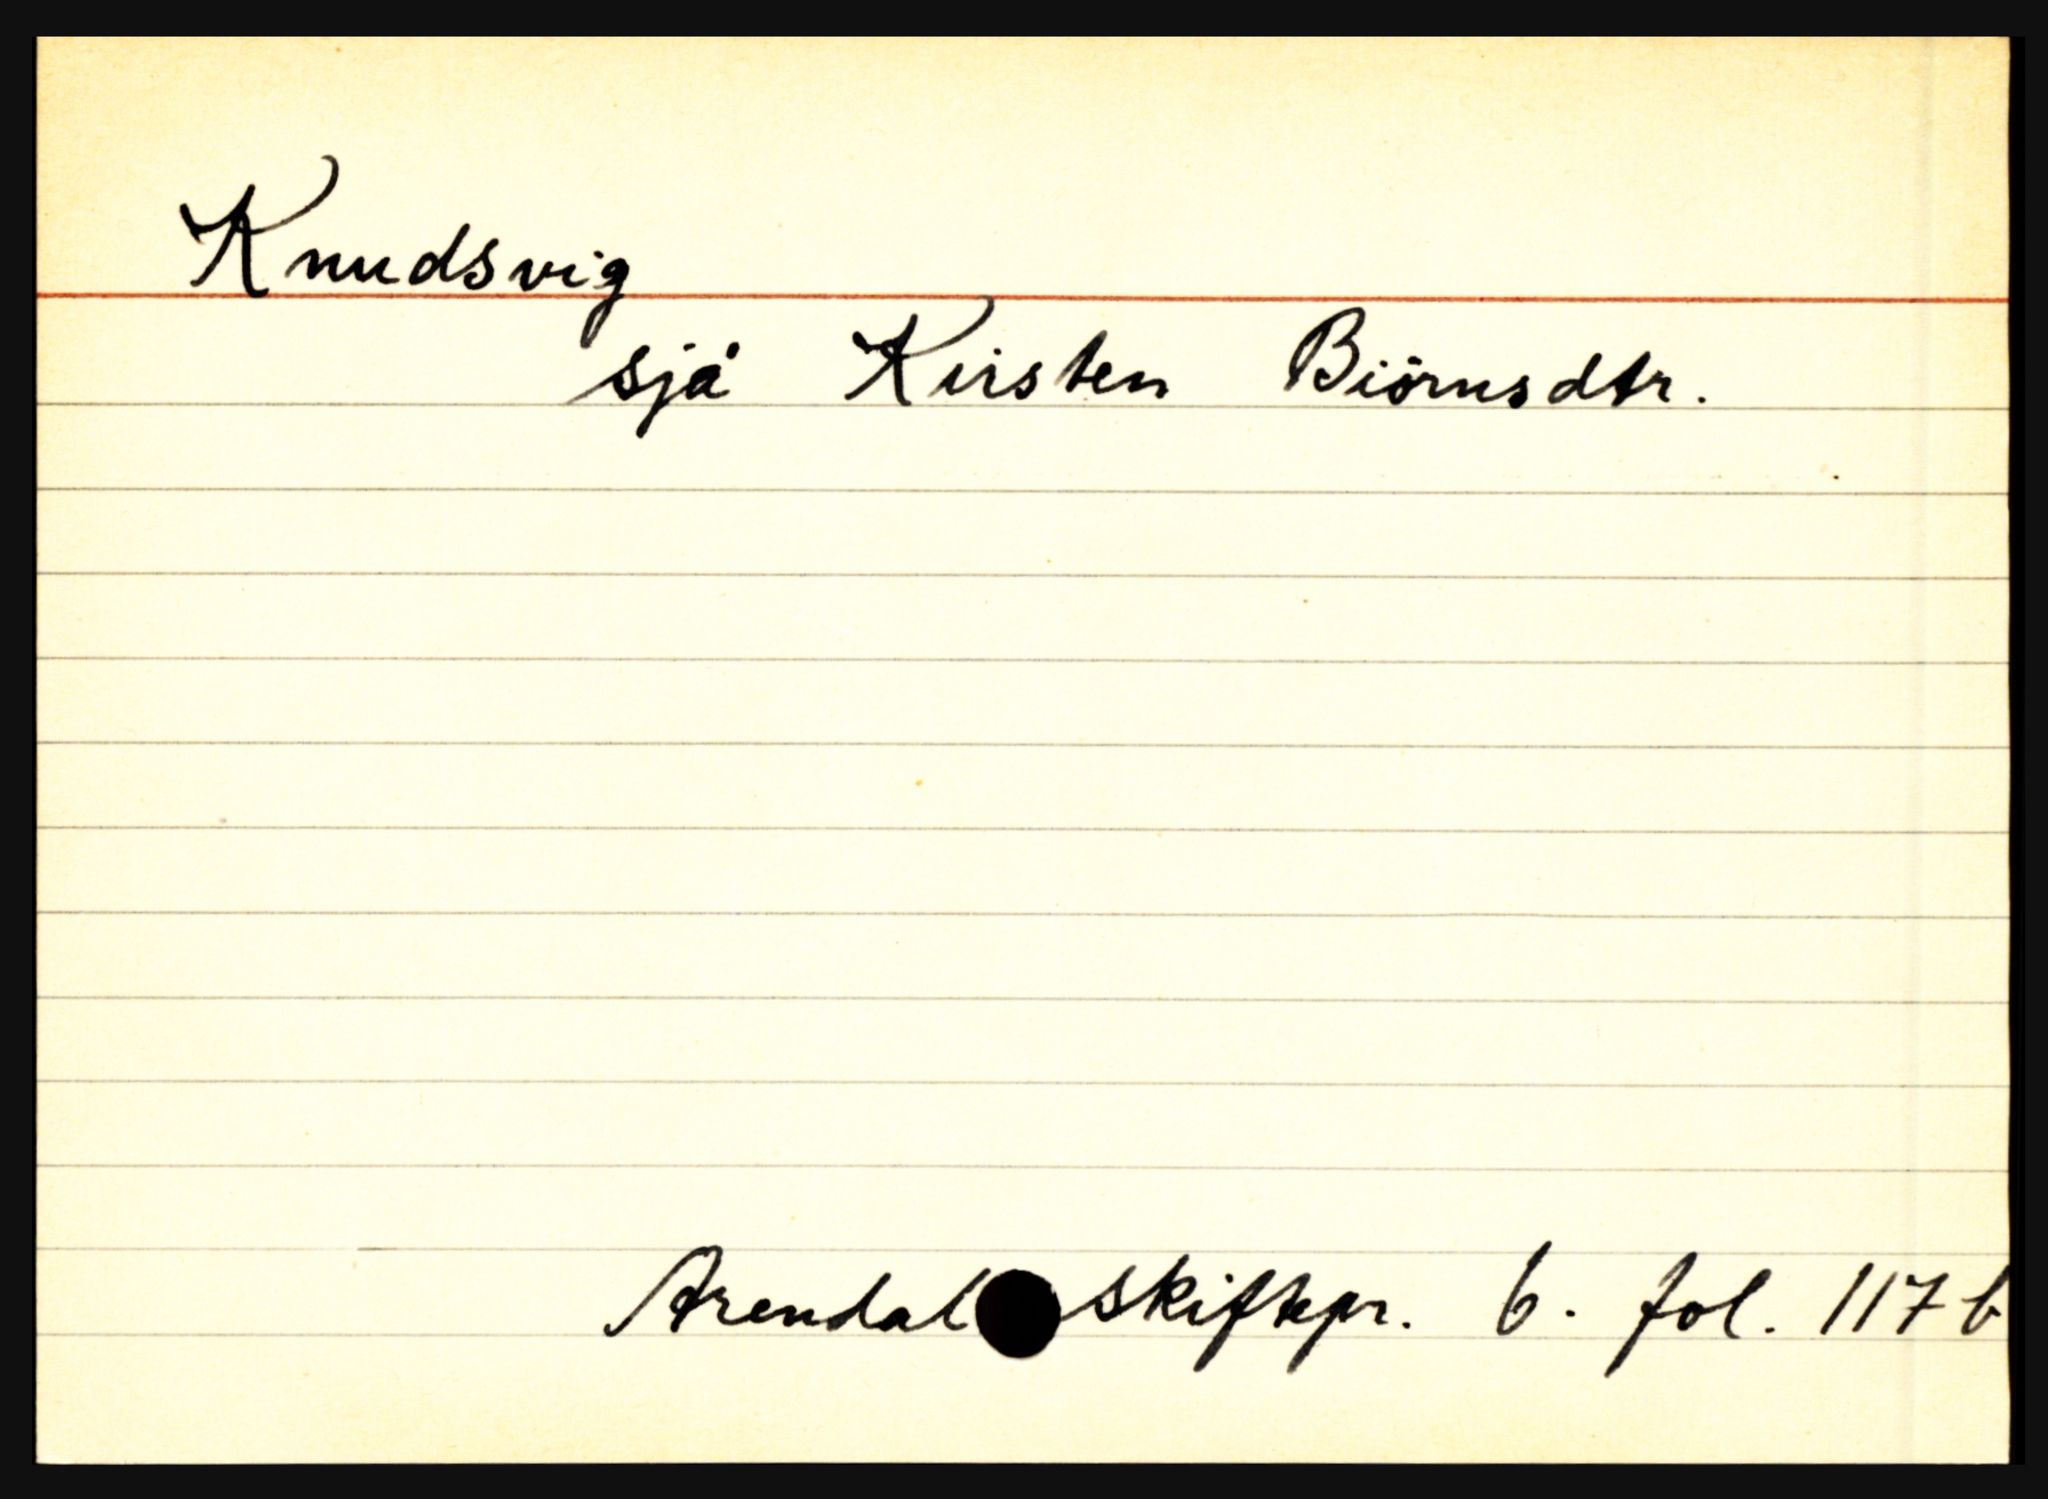 Knudsvig
sjå Kirsten Biörnsdtr.
Arendal skiftepr. 6. fol. 117 b